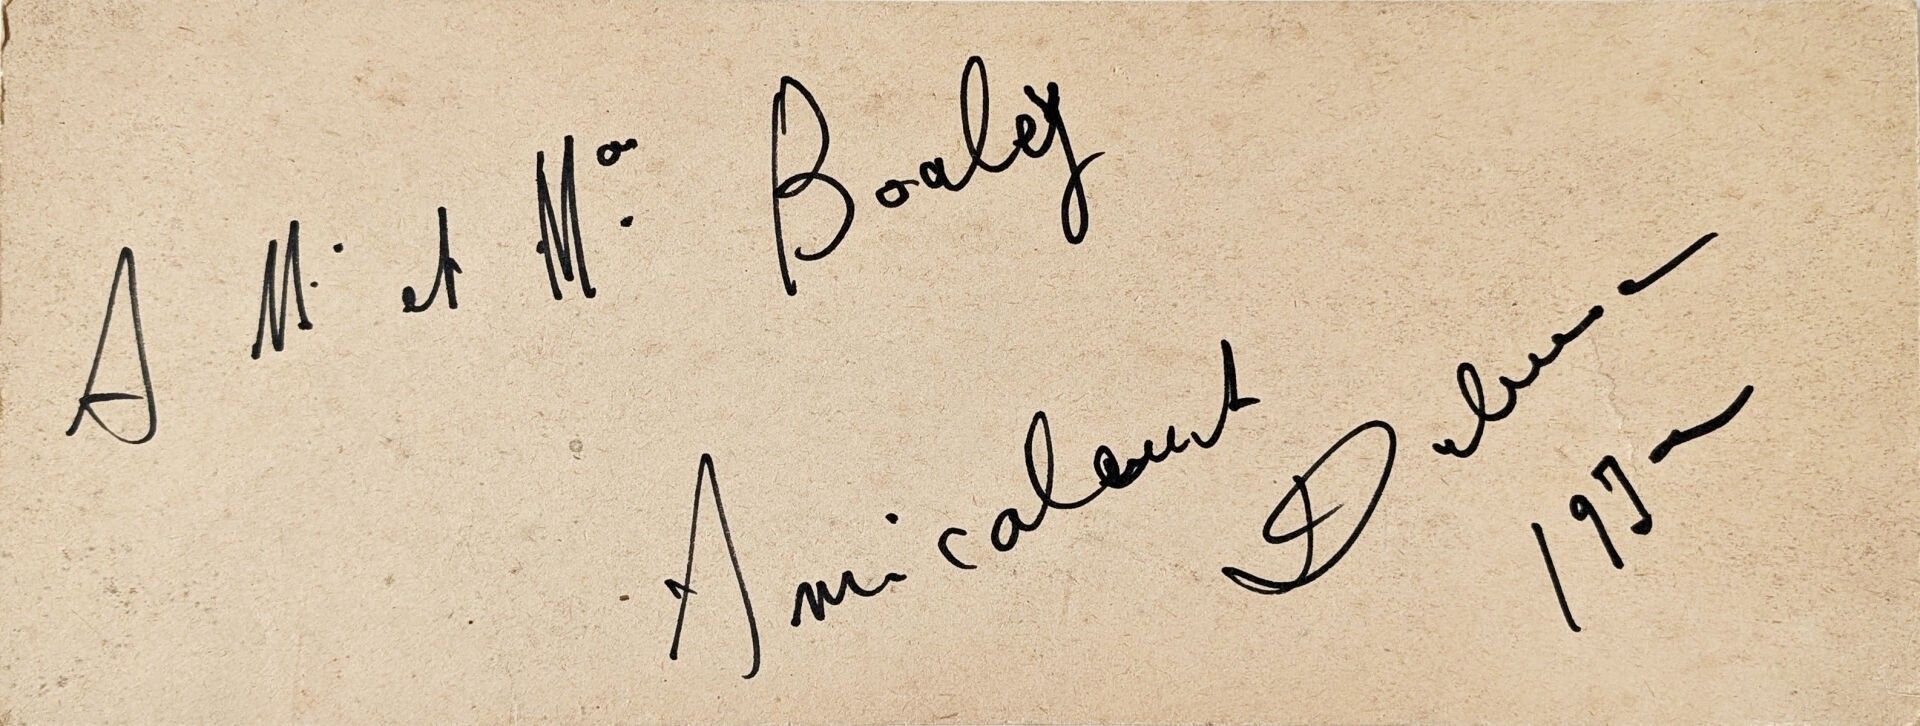 A M. et Mme. Boaley
Amicalement
197